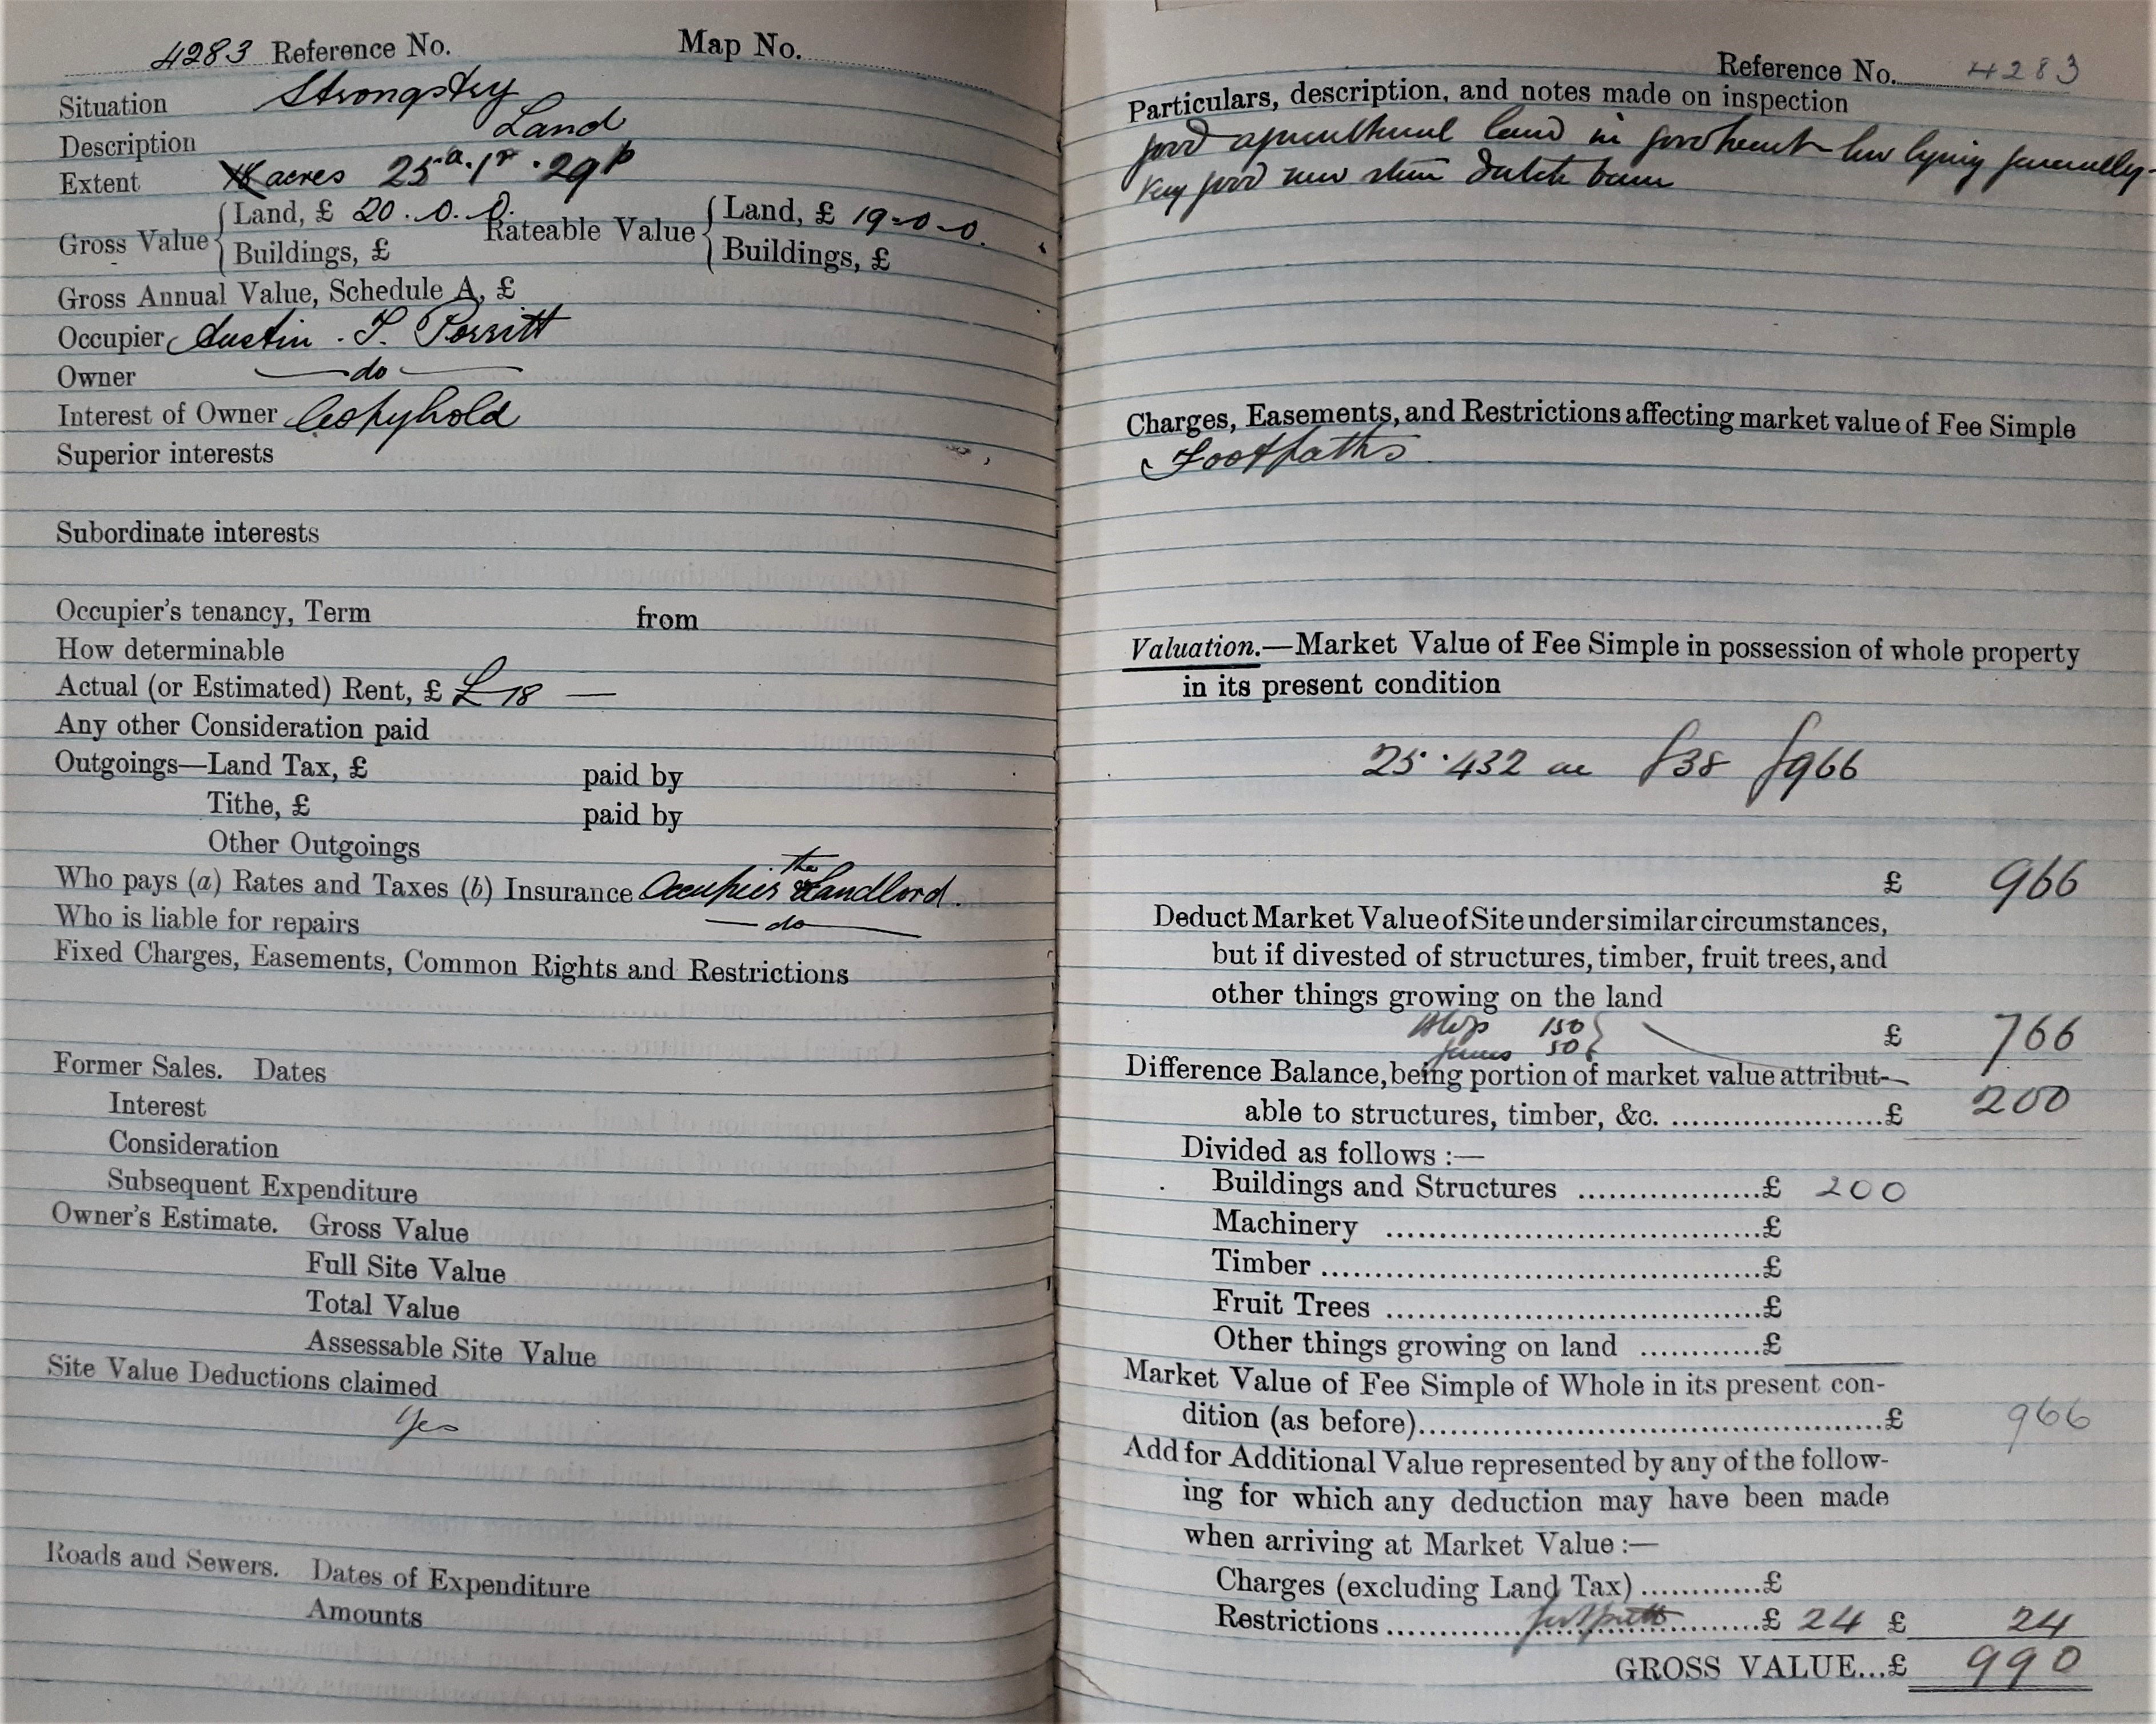 4283 Reference No. Map No.
Situation Strongstry
Description Land
Extent acres 25a. 1r. 29p
Gross Value { Land, £ 20. 0. 0. Rateable Value { Land, £ 19-0-0.
Buildings, £ Buildings, £
Gross Annual Value, Schedule A, £
Occupier Austin T. Porritt
Owner —do—
Interest of Owner Copyhold
Superior interests
Subordinate interests
Occupier's tenancy, Term from
How determinable
Actual (or Estimated) Rent, £ £18 —
Any other Consideration paid
Outgoings—Land Tax, £ paid by
Tithe, £ paid by
Other Outgoings
Who pays (a) Rates and Taxes (b) Insurance Occupier the Landlord.
Who is liable for repairs —do—
Fixed Charges, Easements, Common Rights and Restrictions
Former Sales. Dates
Interest
Consideration
Subsequent Expenditure
Owner's Estimate. Gross Value
Full Site Value
Total Value
Assessable Site Value
Site Value Deductions claimed
Yes
Roads and Sewers. Dates of Expenditure
Amounts
Reference No. 4283
Particulars, description, and notes made on inspection
good agricultural land in good heart low lying generally-
Very good new stone Dutch barn
Charges, Easements, and Restrictions affecting market value of Fee Simple
Footpaths
Valuation.—Market Value of Fee Simple in possession of whole property
in its present condition
25.432 ac £38 £966
£ 966
Deduct Market Value of Site under similar circumstances,
but if divested of structures, timber, fruit trees, and
other things growing on the land
150
50 £ 766
Difference Balance, being portion of market value attribut-
able to structures, timber, &c. ....................£ 200
Divided as follows :—
Buildings and Structures ....................£ 200
Machinery ....................£
Timber ....................£
Fruit Trees ....................£
Other things growing on land ............£
Market Value of Fee Simple of Whole in its present con-
dition (as before)....................£ 966
Add for Additional Value represented by any of the follow-
ing for which any deduction may have been made
when arriving at Market Value :—
Charges (excluding Land Tax) ............£
Restrictions .... footpath ....£ 24 £ 24
GROSS VALUE...£ 990